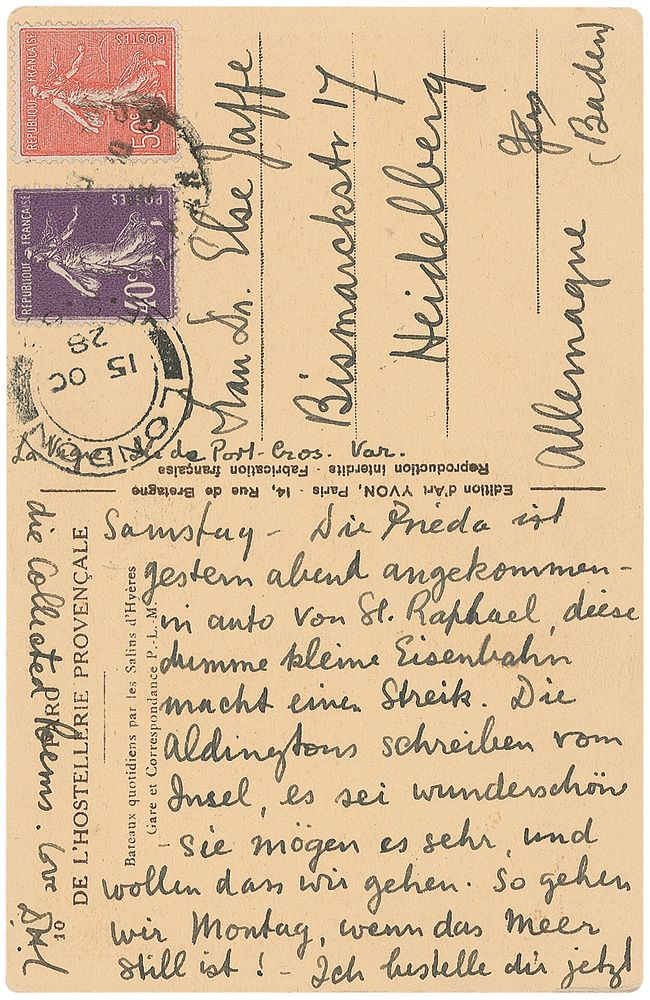 REPUBLIQUE FRANÇAISE
POSTES
50c
REPUBLIQUE FRANÇAISE
POSTES
40c
LONDON
15 OC
28
Frau Dr. Else Jaffe
Bismarckstr 17
Heidelberg
(Baden)
Allemagne
La Vigie Ile de Port-Cros. Var.
Edition d'Art YVON, Paris - 14, Rue de Bretagne
Reproduction interdite - Fabrication française
10
DE L'HOSTELLERIE PROVENÇALE
Bateaux quotidiens par les Salins d'Hyères
Gare et Correspondance P.-L.-M.
Samstag - Die Frieda ist
gestern abend angekommen -
in auto von St. Raphael, diese
dumme kleine Eisenbahn
macht einen Streik. Die
Aldingtons schreiben vom
Insel, es sei wunderschön
- sie mögen es sehr, und
wollen dass wir gehen. So gehen
wir Montag, wenn das Meer
still ist! - Ich bestelle dir jetzt
die Collected Poems. love DHL